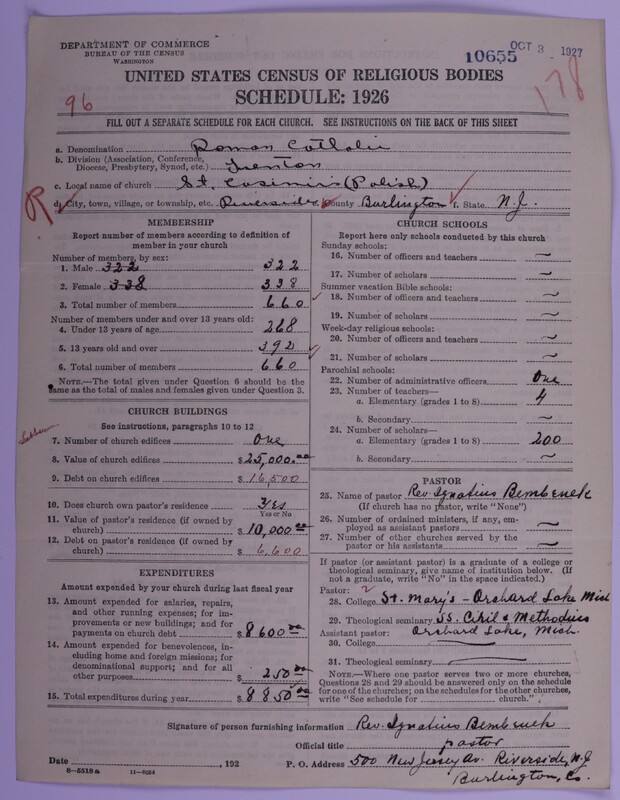 DEPARTMENT OF COMMERCE
BUREAU OF THE CENSUS
WASHINGTON
10655 OCT 3 1927
178
96
UNITED STATES CENSUS OF RELIGIOUS BODIES
SCHEDULE: 1926
FILL OUT A SEPARATE SCHEDULE FOR EACH CHURCH. SEE INSTRUCTIONS ON THE BACK OF THIS SHEET
a. Denomination Roman Catholic
b. Division (Association, Conference, Diocese, Presbytery, Synod, etc.) Trenton
c. Local name of church St. Casimir's (Polish)
R
d. City, town, village, or township, etc. Riverside e. County Burlington f. State N.J.
MEMBERSHIP
Report number of members according to definition of
member in your church
Number of members, by sex:
1. Male 322 322
2. Female 338 338
3. Total number of members 660
Number of members under and over 13 years old:
4. Under 13 years of age 268
5. 13 years old and over 392
6. Total number of members 660
NOTE.—The total given under Question 6 should be the
same as the total of males and females given under Question 3.
CHURCH BUILDINGS
See instructions, paragraphs 10 to 12
7. Number of church edifices One
8. Value of church edifices $ 25,000.00
9. Debt on church edifices $ 16,500
10. Does church own pastor's residence Yes
Yes or No
11. Value of pastor's residence (if owned by
church) $ 10,000 00
12. Debt on pastor's residence (if owned by
church) $ 6,600
EXPENDITURES
Amount expended by your church during last fiscal year
13. Amount expended for salaries, repairs,
and other running expenses; for im-
provements or new buildings; and for
payments on church debt $ 8600 00
14. Amount expended for benevolences, in-
cluding home and foreign missions; for
denominational support; and for all
other purposes $ 250 00
15. Total expenditures during year $ 8850 00
CHURCH SCHOOLS
Report here only schools conducted by this church
Sunday schools:
16. Number of officers and teachers ~
17. Number of scholars ~
Summer vacation Bible schools:
18. Number of officers and teachers ~
19. Number of scholars ~
Week-day religious schools:
20. Number of officers and teachers ~
21. Number of scholars ~
Parochial schools:
22. Number of administrative officers One
23. Number of teachers—
a. Elementary (grades 1 to 8) 4
b. Secondary ~
24. Number of scholars—
a. Elementary (grades 1 to 8) 200
b. Secondary ~
PASTOR
25. Name of pastor Rev. Ignatius Bembenek
(If church has no pastor, write "None")
26. Number of ordained ministers, if any, em-
ployed as assistant pastors ~
27. Number of other churches served by the
pastor or his assistants ~
If pastor (or assistant pastor) is a graduate of a college or
theological seminary, give name of institution below. (If
not a graduate, write "No" in the space indicated.)
Pastor: 2
28. College St. Mary's - Orchard Lake Mich
29. Theological seminary SS. Ciril & Methodius
Assistant pastor: Orchard Lake, Mich.
30. College
31. Theological seminary
NOTE.—Where one pastor serves two or more churches,
Questions 28 and 29 should be answered only on the schedule
for one of the churches; on the schedules for the other churches,
write "See schedule for church."
Signature of person furnishing information Rev. Ignatius Bembenek
Official title pastor
Date , 192 P. O. Address 500 New Jersey Av. Riverside, N.J.
Burlington, Co.
8—5518 a 11—8654